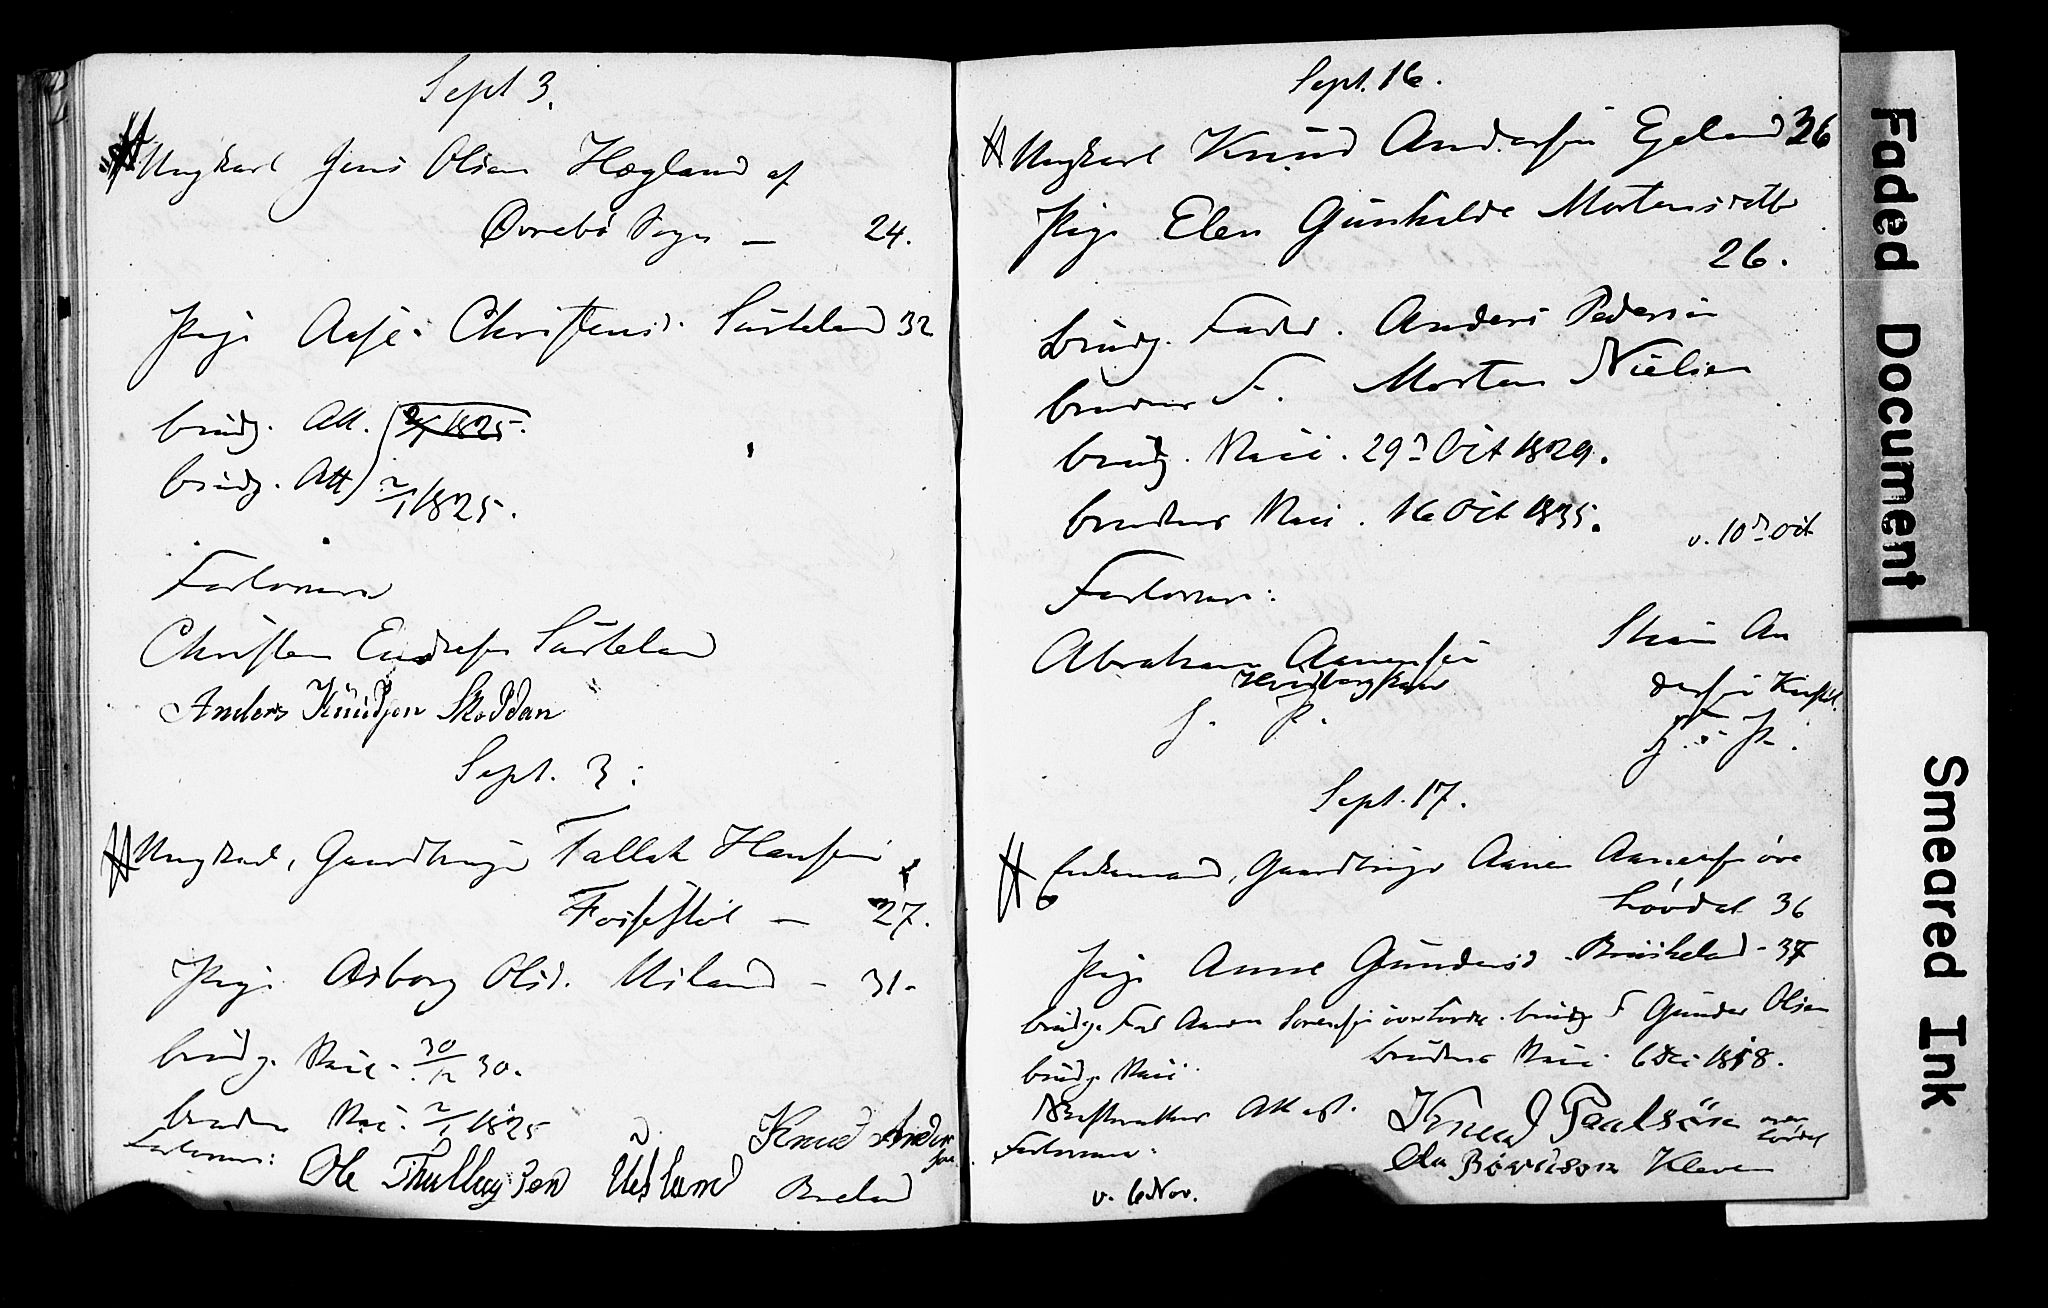 Sept 3.
Ungkarl Jens Olsen Hægland af
Øvrebö Sogn — 24.
Pige Aase Christensd. Sürteland 32
brudg. Att. 2/1 1825.
brudg. Att 2/1 1825.
Forlovere
Christen Endresen Sürteland
Anders Knüdsen Skoddan
Sept. 3:
Ungkarl, Gaardbruger Tallak Hansen
Fossestöl — 27.
Pige Asborg Olsd. Usland - 31.
brudg. Vacc. 30/12 30.
bruden Vac. 2/1 1825
Forlovere: Ole Thullegsen Uesland
Knud Ander
sen
Breland
Sept. 16.
Ungkarl Knud Andersen Egeland 36
Pige Elen Günhilde Mortensdtr
26.
brudg. Fader. Anders Pedersen
brudens F. Morten Nielsen
brudg. Vacc. 29d Oct 1829.
brudens Vacc. 16 Oct 1835.
v. 10d Oct
Forlovere:
Abraham Aanensen
Sept. 17.
Enkemand, Gaardbruger Aanen Aanensen övre
Lövdal 36
Pige Anne Gundersd. Bruskeland - 37
brudg. Fad Aanen Sorensen övre Lövdal. brudg F Gunder Olsen
brudg Vacc. brudens Vacc. 6 Dec 1818.
Skifteretten Attest.
Forlovere:
Knud Paalsön over
Lövdal
Ola Bövdson Kleven
v. 6 Nov.
Faded Document
Smeared Ink